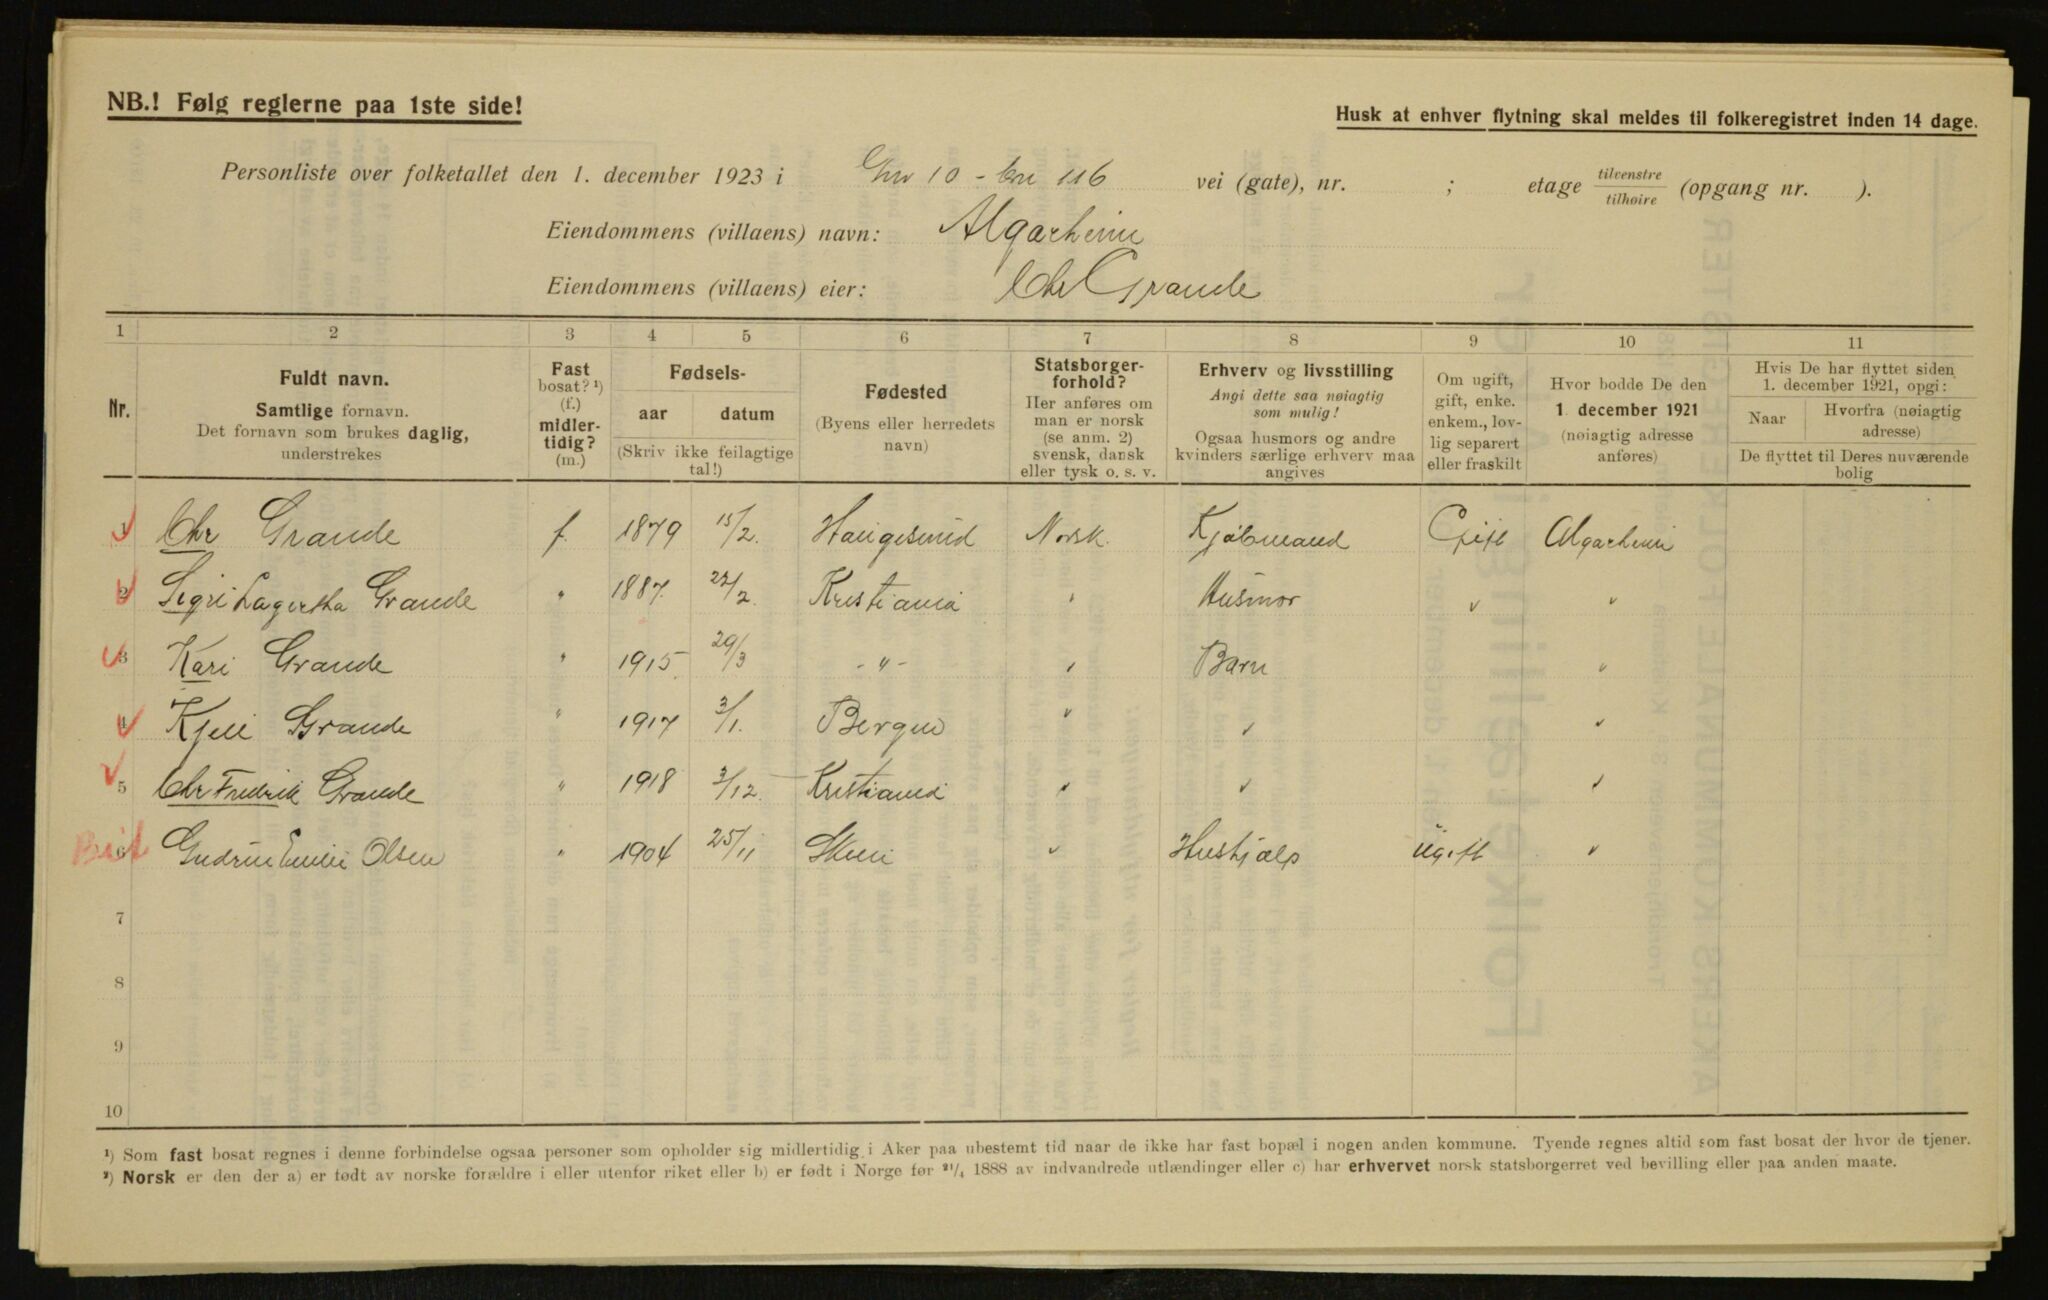 NB.! Følg reglerne paa 1ste side!
Husk at enhver flytning skal meldes til folkeregistret inden 14 dage.
Personliste over folketallet den 1. december 1923 i Gnr 10 - bnr 116 vei (gate), nr. ; etage tilvenstre/tilhøire (opgang nr. ).
Eiendommens (villaens) navn: Algarheim
Eiendommens (villaens) eier: Chr Grande
1 2 3 4 5 6 7 8 9 10 11
Nr.
Fuldt navn.
Samtlige fornavn.
Det fornavn som brukes daglig,
understrekes
Fast
bosat? ¹)
(f.)
midler-
tidig?
(m.)
Fødsels-
aar datum
(Skriv ikke feilagtige
tal!)
Fødested
(Byens eller herredets
navn)
Statsborger-
forhold?
Her anføres om
man er norsk
(se anm. 2)
svensk, dansk
eller tysk o. s. v.
Erhverv og livsstilling
Angi dette saa nøiagtig
som mulig!
Ogsaa husmors og andre
kvinders særlige erhverv maa
angives
Om ugift,
gift, enke.
enkem., lov-
lig separert
eller fraskilt
Hvor bodde De den
1. december 1921
(nøiagtig adresse
anføres)
Hvis De har flyttet siden
1. december 1921, opgi:
Naar
Hvorfra (nøiagtig
adresse)
De flyttet til Deres nuværende
bolig
1 Chr Grande f. 1879 15/2. Haugesund Norsk. Kjøbmand Gift Algarheim
2 Sigri Lagertha Grande " 1887. 22/2. Kristiania " Husmor " "
3 Kari Grande " 1915. 29/3 - " - " Barn "
4 Kjell Grande " 1917 3/1. Bergen " " "
5 Chr Fredrik Grande " 1918 3/12. Kristiania " " "
6 Gudrun Emilie Olsen " 1904 25/11 Skien " Hushjælp Ugift "
7
8
9
10
¹) Som fast bosat regnes i denne forbindelse ogsaa personer som opholder sig midlertidig i Aker paa ubestemt tid naar de ikke har fast bopæl i nogen anden kommune. Tyende regnes altid som fast bosat der hvor de tjener.
²) Norsk er den der a) er født av norske forældre i eller utenfor riket eller b) er født i Norge før 21/4 1888 av indvandrede utlændinger eller c) har erhvervet norsk statsborgerret ved bevilling eller paa anden maate.